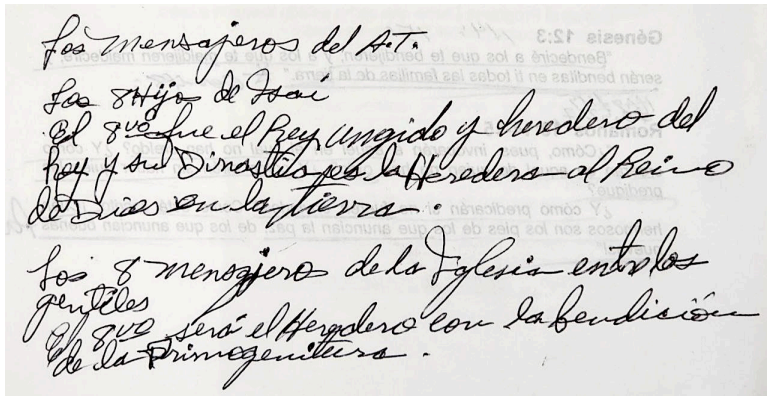 Los mensajeros del A.T.
Los 8 Hijos de Isaí
El 8vo fue el Rey, ungido y heredero del
Rey y su Dinastía es la Heredera al Reino
de Dios en la tierra.
Los 8 mensajero de la Iglesia entre los
gentiles
El 8vo será el Heredero con la bendición
de la Primogenitura.